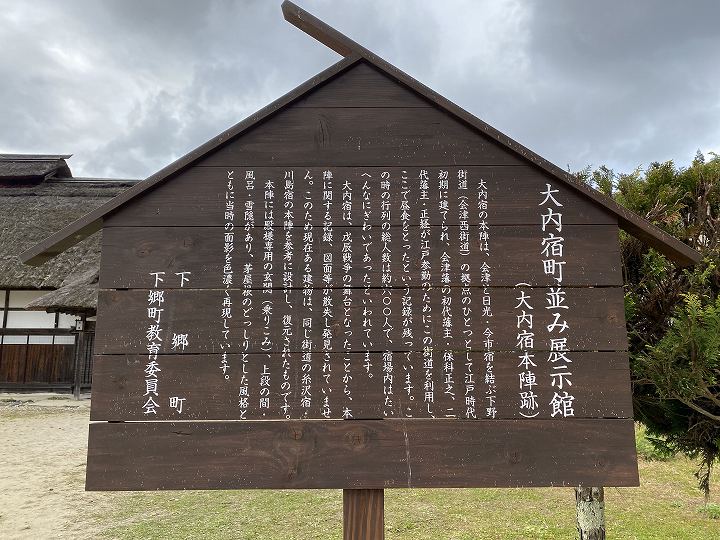 大内宿町並み展示館
(大内宿本陣跡)
大内宿の本陣は、会津と日光・今市宿を結ぶ下野
街道(会津西街道)の拠点のひとつとして江戸時代
初期に建てられ、会津藩の初代藩主・保科正之、二
代藩主・正経が江戸参勤のためにこの街道を利用し、
ここで昼食をとったという記録が残っています。こ
の時の行列の総人数は約六〇〇人で、宿場内はたい
へんなにぎわいであったといわれています。
大内宿は、戊辰戦争の舞台となったことから、本
陣に関する記録、図面等が散失し発見されていませ
ん。このため現在ある建物は、同じ街道の糸沢宿・
川島宿の本陣を参考に設計し、復元されたものです。
本陣には殿様専用の玄関(乗りこみ)、上段の間、
風呂・雪隠があり、茅屋根のどっしりとした風格と
ともに当時の面影を色濃く再現しています。
下郷町
下郷町教育委員会